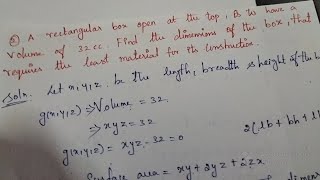 ⑤ A rectangular box open at the top, is to have a
Volume of 32 cc. Find the dimensions of the box, that
requires the least material for its construction.
Soln: Let x, y, z be the length, breadth & height of the b
g(x,y,z) ⇒ Volume = 32
⇒ xyz = 32
g(x,y,z) = xyz - 32 = 0 2(lb + bh + l
Surface area = xy + 2yz + 2zx
dimen